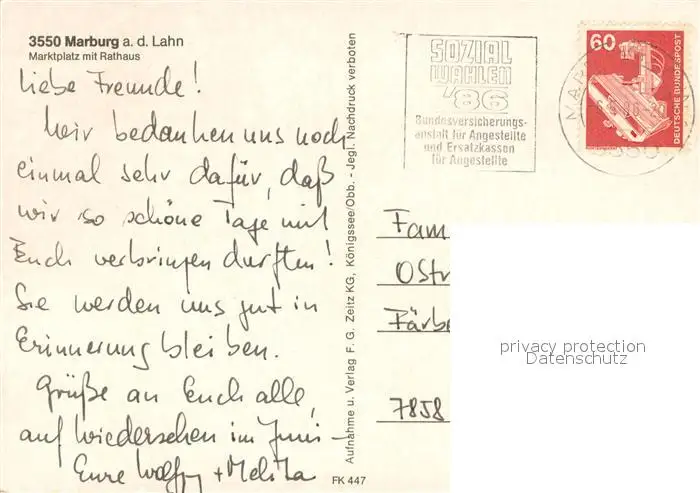 3550 Marburg a. d. Lahn
Marktplatz mit Rathaus
Liebe Freunde!
Wir bedanken uns noch
einmal sehr dafür, daß
wir so schöne Tage mit
Euch verbringen durften!
Sie werden uns gut in
Erinnerung bleiben.
Grüße an Euch alle,
auf Wiedersehen im Juni –
Eure Wolfg + Melitta
Aufnahme u. Verlag F. G. Zeitz KG, Königssee/Obb. - Jegl. Nachdruck verboten
FK 447
SOZIAL
WAHLEN
'86
Bundesversicherungs-
anstalt für Angestellte
und Ersatzkassen
für Angestellte
60
DEUTSCHE BUNDESPOST
Fam
Ostr
Färbe
7858
privacy protection
Datenschutz